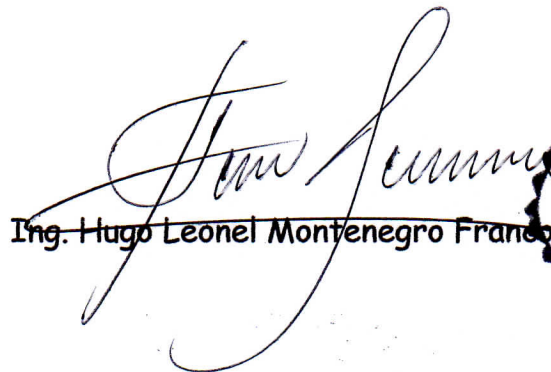 Ing. Hugo Leonel Montenegro Franco